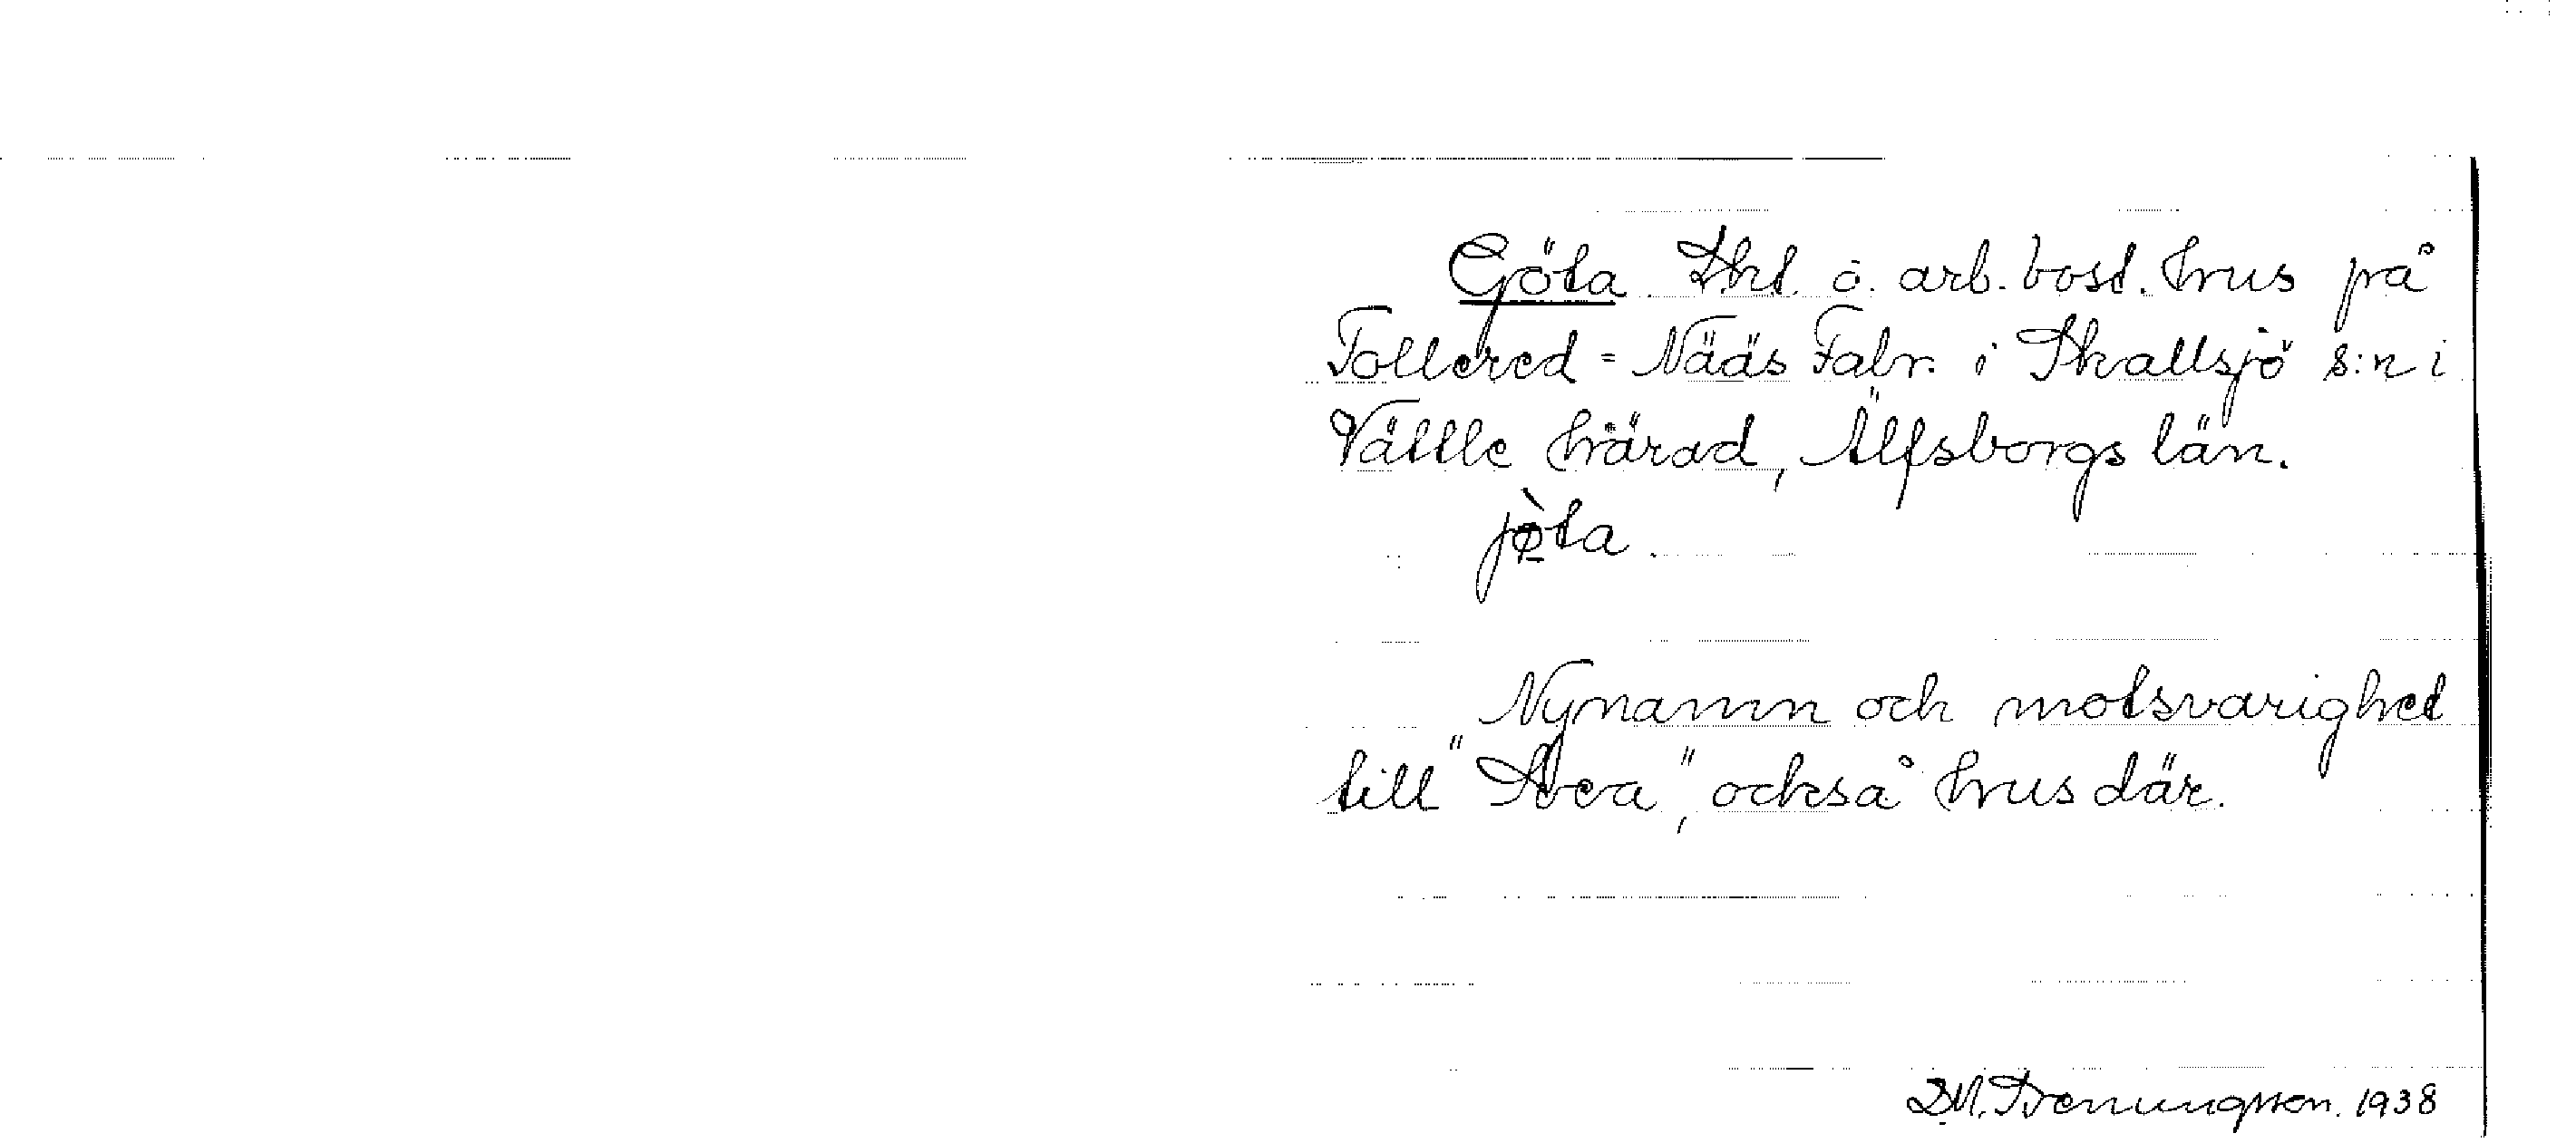 Göta. Skt. o. arb. bost. hus på
Tollered = Nääs Fabr. i Skallsjö s:n i
Vättle härad, Älfsborgs län.
jø̀ta.
Nynamn och motsvarighet
till "Svea", också hus där.
1938